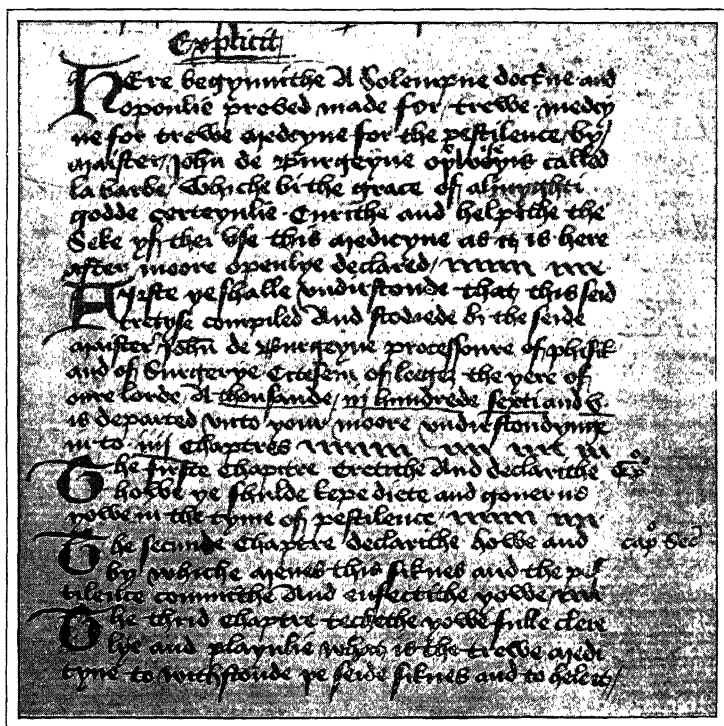 Explicit
Here begynnithe A Solempne doctrne and
oponlie proved made for trewe medcy
ne for trewe medcyne for the pestilence by
maister John de Burgeyne called
la barbe Whiche bi the grace of almyghti
godde certeynlie Curithe and helpithe the
Seke yf thei vse this medicyne as it is here
after moore openlye declared
Firste ye shalle vndirstonde that this seid
tretyse compiled And stodiede bi the seide
maister John de Burgeyne processoure of phisik
and of Surgerye Citesein of leege the yere of
oure lorde A thousande iij hundrede sexti and v.
is departed vnto your moore vndirstondynge
in to iiij Chaptres
The firste Chapitre tretithe And declarithe Cp°
howe ye shulde kepe diete and governe
yowe in the tyme of pestilence
The secunde Chaptre declarithe howe and cap° Secd
by whiche menes this siknes and the pes
tilence commithe And enfectithe yowe
The thrid Chaptre techethe yowe fulle clere
lye and playnlie what is the trewe medi
cyne to withstonde ye seide siknes and to hele it